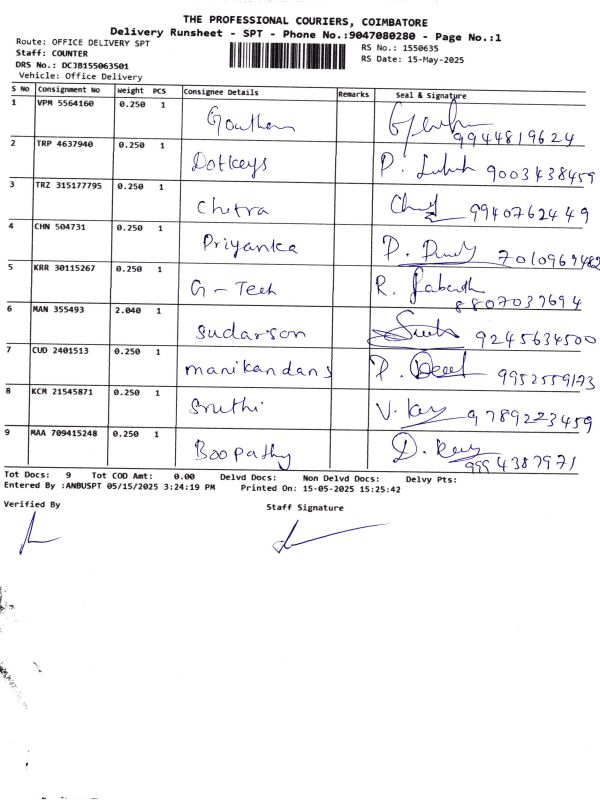 THE PROFESSIONAL COURIERS, COIMBATORE
Delivery Runsheet - SPT - Phone No.:9047080280 - Page No.:1
Route: OFFICE DELIVERY SPT
Staff: COUNTER
DRS No.: DCJB155063501
Vehicle: Office Delivery
RS No.: 1550635
RS Date: 15-May-2025
S No Consignment No Weight PCS Consignee Details Remarks Seal & Signature
1 VPM 5564160 0.250 1 Gowtham
9944819624
2 TRP 4637940 0.250 1 Dotkeys P. 9003438459
3 TRZ 315177795 0.250 1 Chitra 9940762449
4 CHN 504731 0.250 1 Priyanka P. 7010969482
5 KRR 30115267 0.250 1 G-Tech R.
8807037694
6 MAN 355493 2.040 1 Sudarson 9245634500
7 CUD 2401513 0.250 1 manikandans P. 9952559173
8 KCM 21545871 0.250 1 Sruthi V. 9789223459
9 MAA 709415248 0.250 1 Boopathy D.
9994387971
Tot Docs: 9 Tot COD Amt: 0.00 Delvd Docs: Non Delvd Docs: Delvy Pts:
Entered By :ANBUSPT 05/15/2025 3:24:19 PM Printed On: 15-05-2025 15:25:42
Verified By Staff Signature